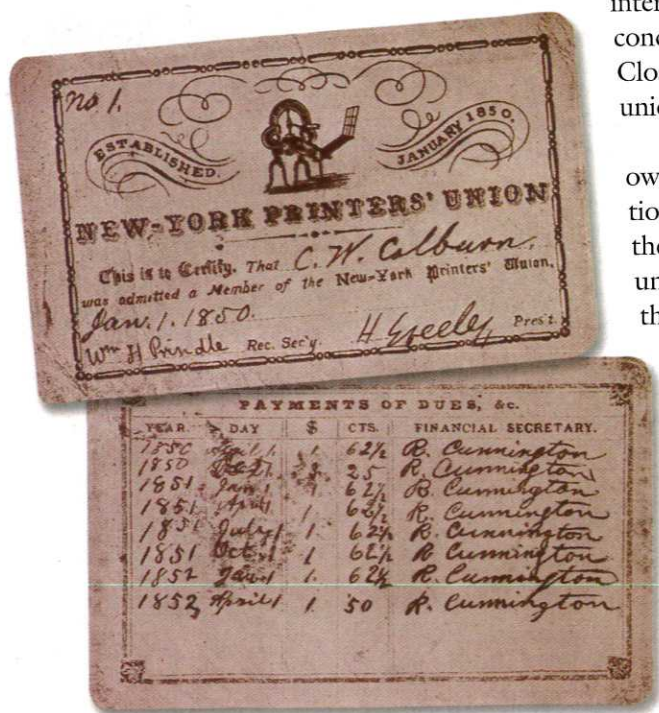 inter
conc
Clo
unio
ow
tio
the
un
th
No 1.
ESTABLISHED.
JANUARY 1850.
NEW-YORK PRINTERS' UNION
This is to Certify, That C. W. Colburn.
was admitted a Member of the New-York Printers' Union.
Jan. 1. 1850.
Wm H Prindle Rec. Sec'y. H Greeley Pres't.
PAYMENTS OF DUES, &c.
YEAR. DAY $ CTS. FINANCIAL SECRETARY.
1850 April 1 1 62½ R. Cunnington
1850 3 25 R. Cunnington
1851 Jan 1 1 62½ R. Cunnington
1851 April 1 62½ R. Cunnington
1851 July 1 1. 62½ R. Cunnington
1851 Oct. 1 1 62½ R. Cunnington
1852 Jan 1 1. 62½ R. Cunnington
1852, April 1 1. 50 R. Cunnington